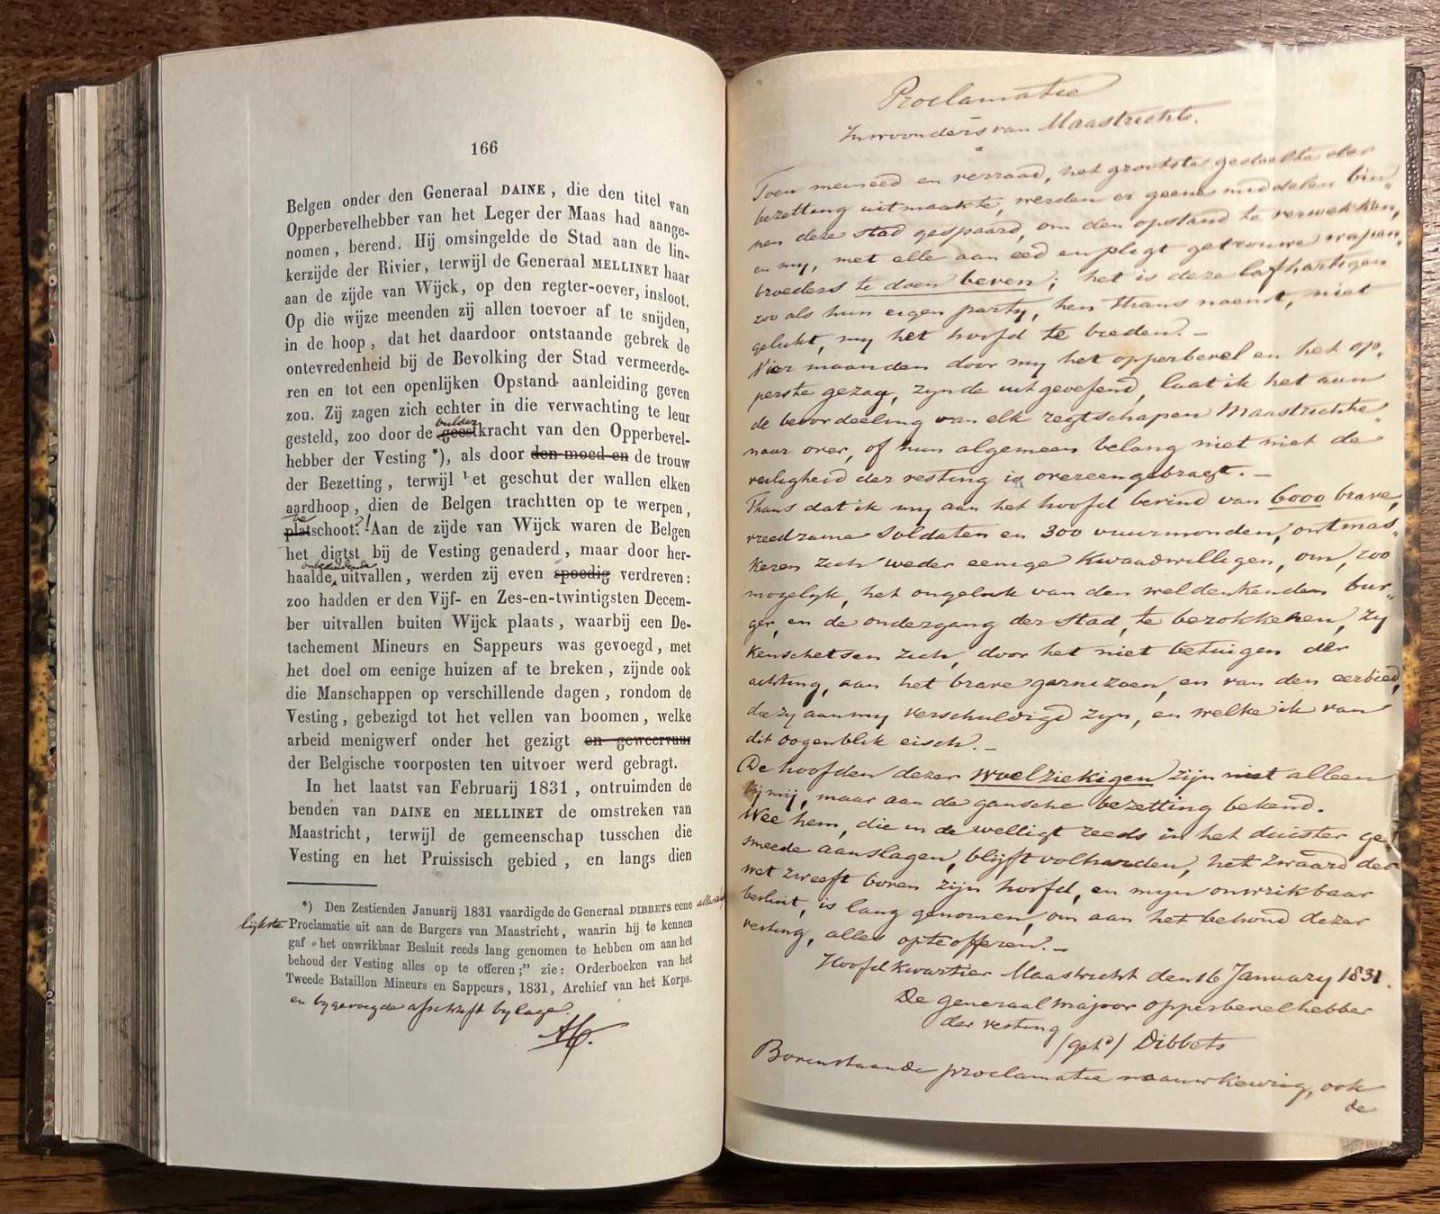 166
Belgen onder den Generaal DAINE, die den titel van
Opperbevelhebber van het Leger der Maas had aange-
nomen, berend. Hij omsingelde de Stad aan de lin-
kerzijde der Rivier, terwijl de Generaal MELLINET haar
aan de zijde van Wijck, op den regter-oever, insloot.
Op die wijze meenden zij allen toevoer af te snijden,
in de hoop, dat het daardoor ontstaande gebrek de
ontevredenheid bij de Bevolking der Stad vermeerde-
ren en tot een openlijken Opstand aanleiding geven
zou. Zij zagen zich echter in die verwachting te leur
bulder
gesteld, zoo door de geestkracht van den Opperbevel-
hebber der Vesting *), als door den moed en de trouw
der Bezetting, terwijl het geschut der wallen elken
aardhoop, dien de Belgen trachtten op te werpen,
be
platschoot.?! Aan de zijde van Wijck waren de Belgen
het digtst bij de Vesting genaderd, maar door her-
onbeduidende
haalde uitvallen, werden zij even spoedig verdreven:
zoo hadden er den Vijf- en Zes-en-twintigsten Decem-
ber uitvallen buiten Wijck plaats, waarbij een De-
tachement Mineurs en Sappeurs was gevoegd, met
het doel om eenige huizen af te breken, zijnde ook
die Manschappen op verschillende dagen, rondom de
Vesting, gebezigd tot het vellen van boomen, welke
arbeid menigwerf onder het gezigt en geweervuur
der Belgische voorposten ten uitvoer werd gebragt.
In het laatst van Februarij 1831, ontruimden de
benden van DAINE en MELLINET de omstreken van
Maastricht, terwijl de gemeenschap tusschen die
Vesting en het Pruissisch gebied, en langs dien
*) Den Zestienden Januarij 1831 vaardigde de Generaal DIBBETS eene
Proclamatie uit aan de Burgers van Maastricht, waarin hij te kennen
gaf "het onwrikbaar Besluit reeds lang genomen te hebben om aan het
behoud der Vesting alles op te offeren;" zie: Orderboeken van het
Tweede Bataillon Mineurs en Sappeurs, 1831, Archief van het Korps.
en bygevoegde afschrift bylage?
Proclamatie
Inwoonders van Maastricht.
Toen meineed en verraad, het grootste gedeelte der
bezetting uitmaakte, werden er geene middelen bin-
nen deze stad gespaard, om den opstand te verwekken,
en my, met alle aan eed en plegt getrouwe wapen,
broeders te doen beven; het is deze lafhartigen
zoo als hun eigen party, hen thans noemt, niet
gelukt, my het hoofd te bieden.—
Vier maanden door my het opperbevel en het op-
perste gezag, zynde uitgeoefend, laat ik het aan
de beoordeeling van elk regtschapen Maastrichte-
naar over, of hun algemeen belang niet met de
veiligheid der vesting is overeengebragt.—
Thans dat ik my aan het hoofd bevind van 6000 brave,
vreedzame soldaten en 300 vuurmonden, ontmas-
keren zich weder eenige kwaadwilligen, om, zoo
mogelyk, het ongeluk van den weldenkenden bur-
ger, en de ondergang der stad, te berokkenen, zy
kenschetsen zich, door het niet betuigen der
achting, aan het brave garnizoen, en van den eerbied,
die zy aan my verschuldigd zyn, en welke ik van
dit oogenblik eisch.—
De hoofden dezer woelziekigen zijn niet alleen
bij mij, maar aan de gansche bezetting bekend.
Wee hem, die in de welligt reeds in het duister ge-
smeede aanslagen, blijft volharden, het zwaard der
wet zweeft boven zijn hoofd, en myn onwrikbaar
besluit, is lang genomen, om aan het behoud dezer
vesting, alles opteofferen.—
Hoofdkwartier Maastricht den 16 January 1831.
De generaal majoor opperbevelhebber
der vesting
(get.d) Dibbets
Bovenstaande proclamatie naauwkeurig, ook
de